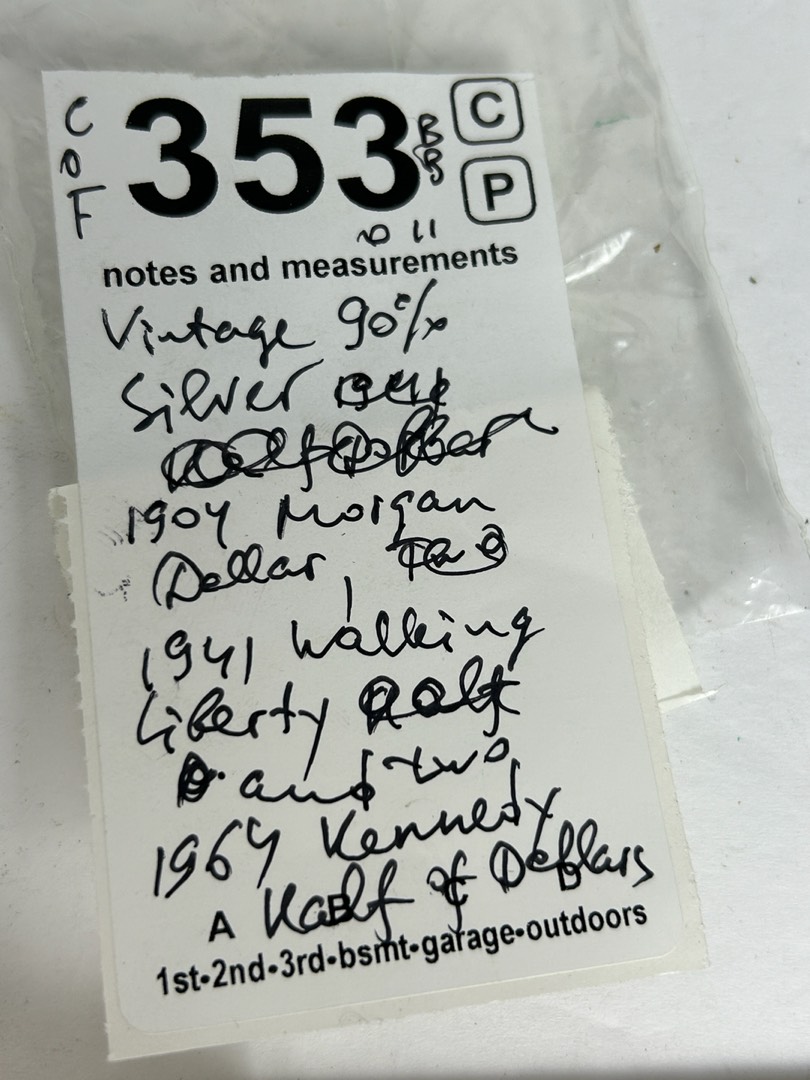 C O F
353
B B
C
P
11
notes and measurements
Vintage 90%
Silver
1904 Morgan
Dollar,
1941 Walking
Liberty
and two
1964 Kennedy
Half of Dollars
A B C D
1st•2nd•3rd•bsmt•garage•outdoors